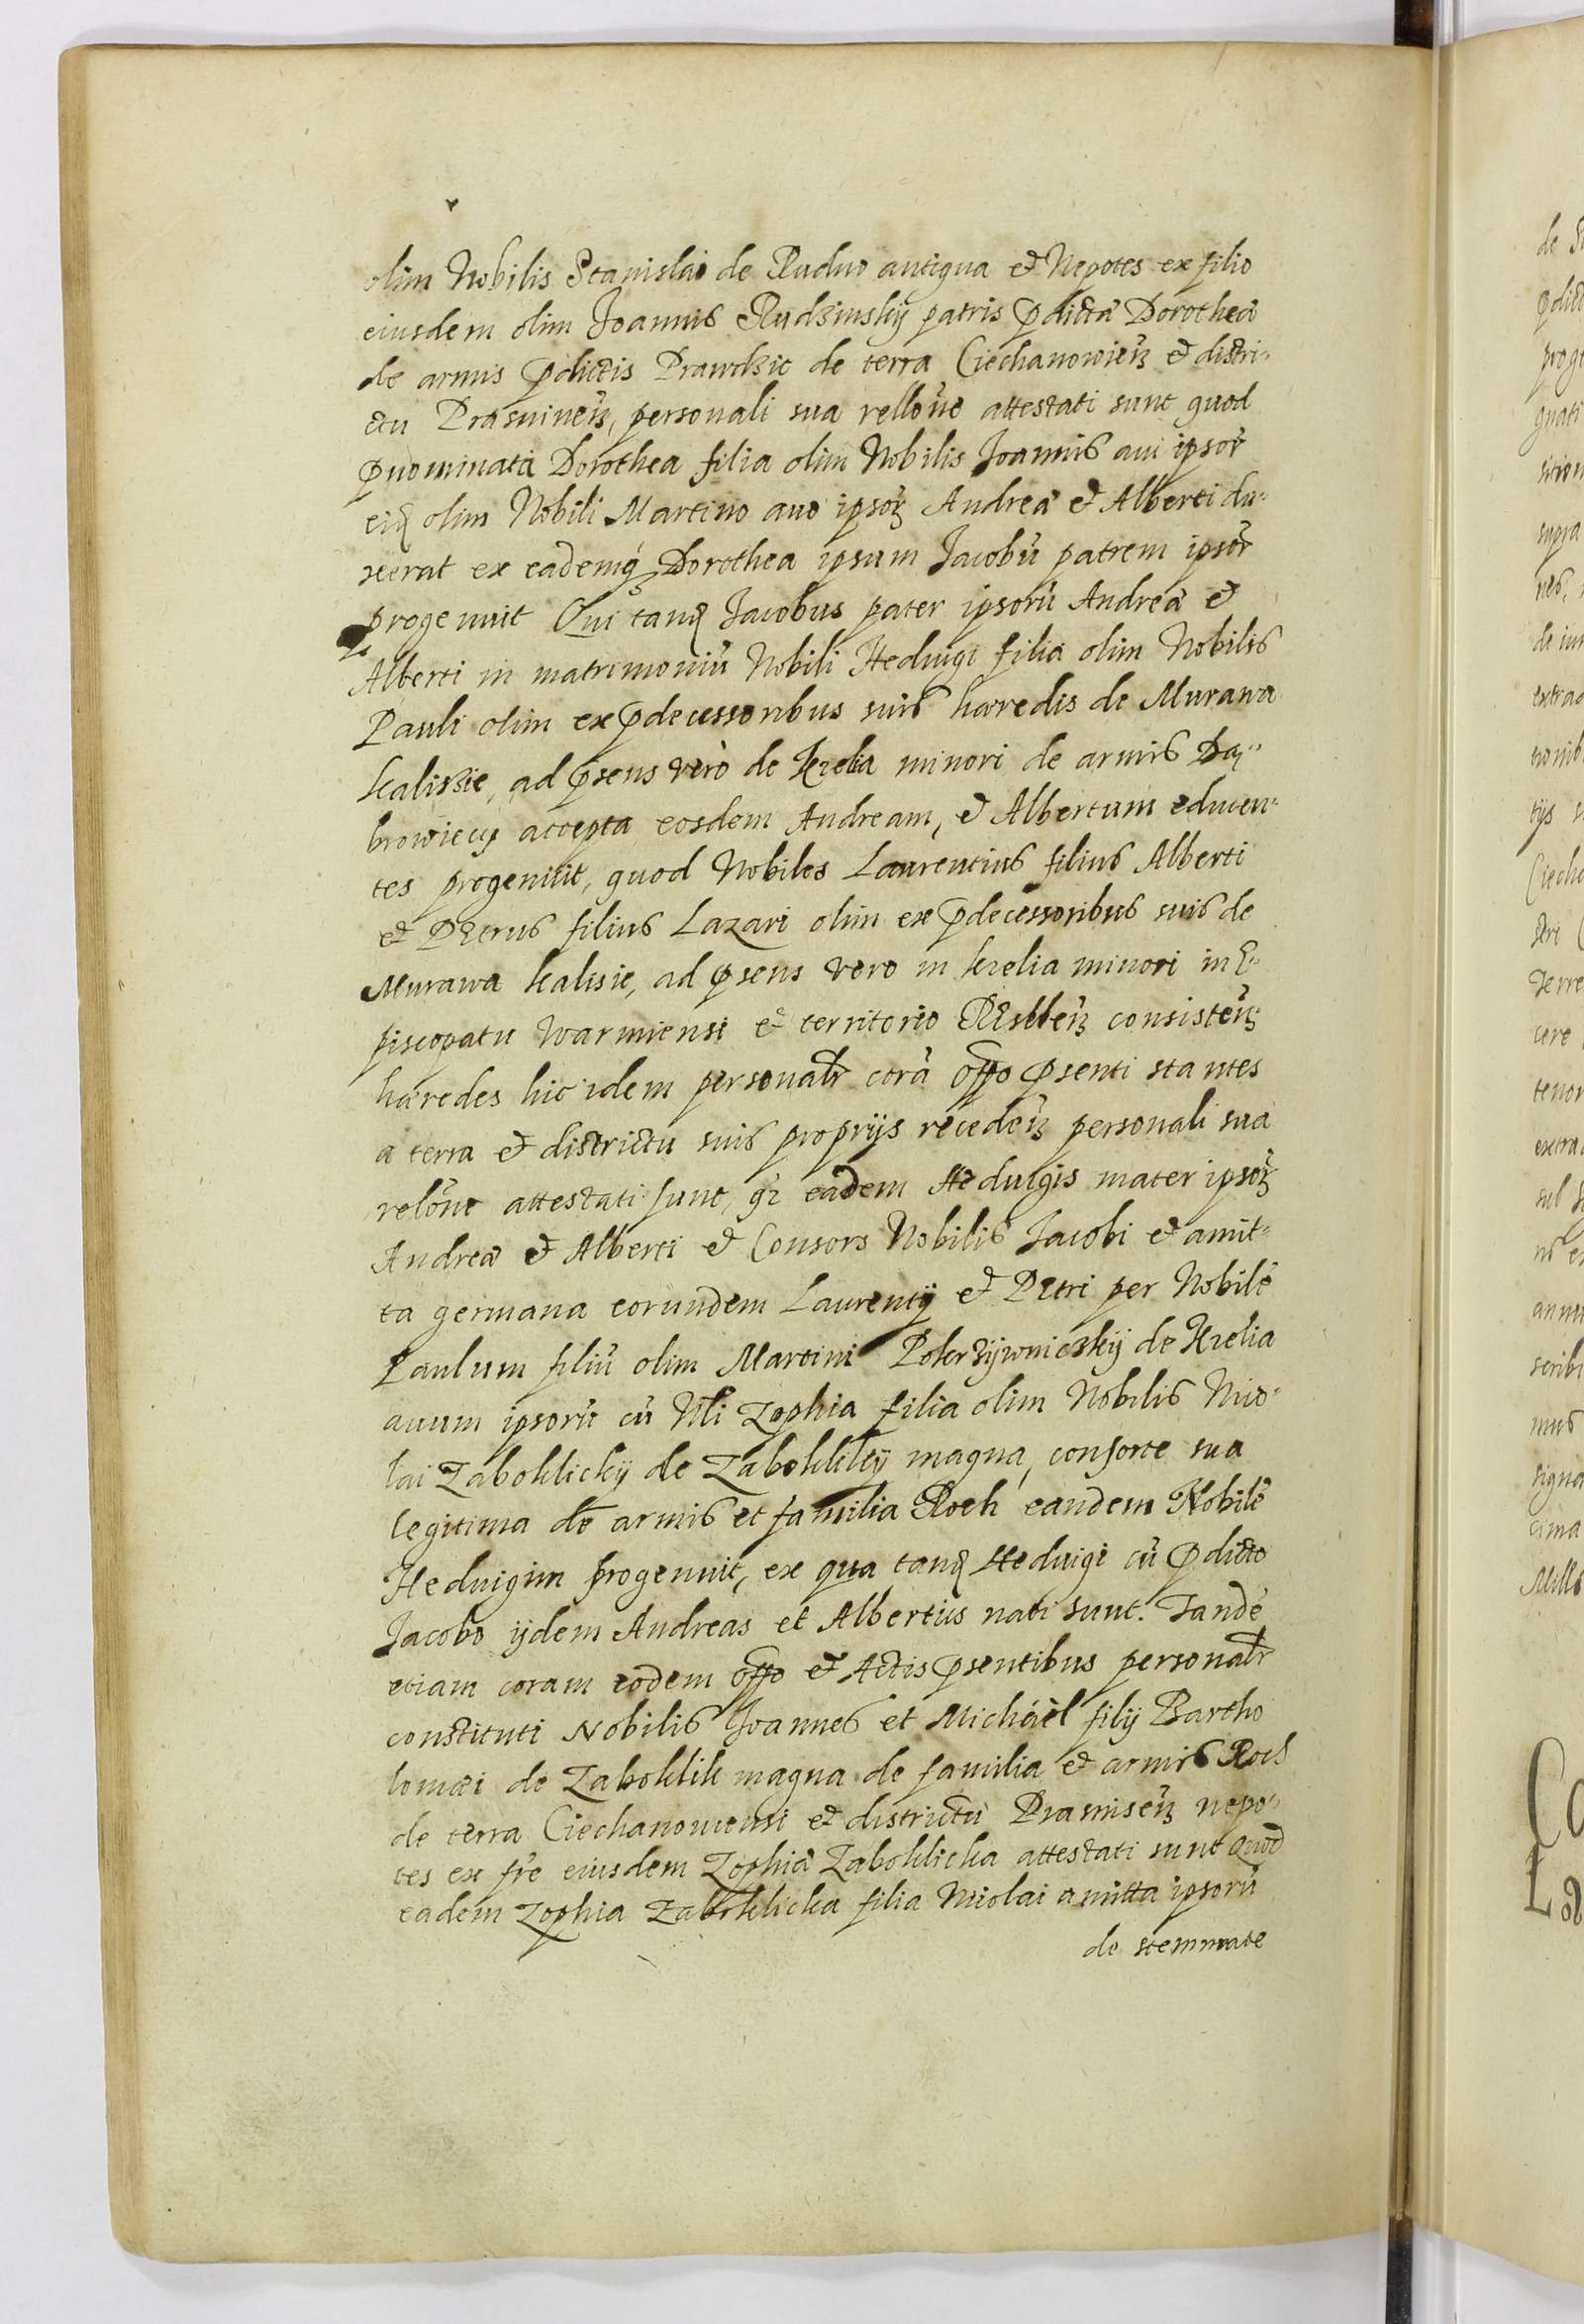 olim Nobilis Stanislai de Rudno antiqua et Nepotes ex filio
eiusdem olim Joannis Rudzinskÿ patris p̱dictæ Dorotheæ
de armis p̱dictis Prawdzic de terra Ciechanowieñ et distri-
ctu Prasnineñ, personali sua rellone attestati sunt quod
p̱nominata Dorothea filia olim Nobilis Joannis aui ipsor̃
olim Nobili Martino auo ipsoꝝ Andreæ et Alberti du-
xerat ex eademq́ꝫ Dorothea ipsum Jacobũ patrem ipsor̃
progenuit Qui tanꝗ Jacobus pater ipsorũ Andreæ et
Alberti in matrimoniũ Nobili Heduigi filia olim Nobilis
Pauli olim ex p̱decessoribus suis hæredis de Murawa
kalissie, ad p̱sens verò de Krelia minori de armis Dą-
browiecz accepta eosdem Andream, et Albertum educen-
tes progenuit, quod Nobiles Laurentius filius Alberti
et Petrus filius Lazari olim ex p̱decessoribus suis de
Murawa kalisie, ad p̱sens vero in krelia minori in E-
piscopatu Warmiensi et territorio Reslleñ consisteñ
hæredes hic idem personalr̃ corã offo p̱senti stantes
a terra et districtu suis proprijs recedeñ personali sua
relõne attestati sunt, qr eadem Heduigis mater ipsoꝝ
Andreæ et Alberti et Consors Nobilis Jacobi et amit-
ta germana eorundem Laurentij et Petri per Nobilẽ
Paulum filiũ olim Martini Pokrzÿwnickÿ de Krelia
auum ipsorũ cũ Nli Zophia filia olim Nobilis Nico-
lai Zaboklickÿ de Zaboklikÿ magna, consorte sua
legitima de armis et familia Roch eandem Nobilẽ
Heduigim progenuit, ex qua tanꝗ Heduigi cũ p̱dicto
Jacobo ijdem Andreas et Albertus nati sunt. Tandẽ
etiam coram eodem offo et Actis p̱sentibus personalr̃
constituti Nobilis Joannes et Michaèl filij Bartho
lomæi de Zaboklik magna de familia et armis Roch
de terra Ciechanouiensi et districtu Pramiseñ nepo-
tes ex fre eiusdem Zophiæ Zaboklicka attestati sunt Quod
eadem Zophia Zaboklicka filia Nicolai amitta ipsorũ
de stemmate